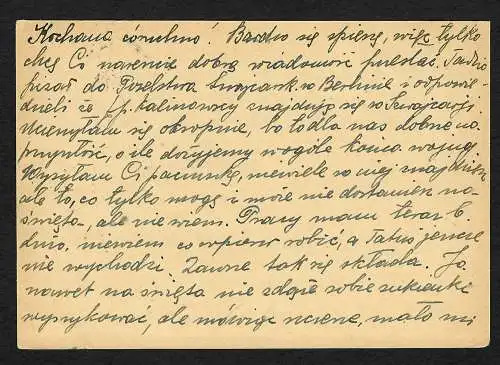 Kochana córuchno! Bardzo się spieszę, więc tylko
chcę Ci nareszcie dobrą wiadomość przesłać. Tadzio
pisał do Poselstwa Szwajcarsk. w Berlinie i odpowie-
dzieli że pp. Kalinowscy znajdują się w Szwajcarji.
Ucieszyłam się okropnie, bo to dla nas dobre na
przyszłość, o ile dożyjemy wogóle końca wojny.
Wysyłam Ci paczuszkę, niewiele w niej znajdziesz
ale to, co tylko mogę i może nie dostaniesz na
święta, ale nie wiem. Pracy mam teraz b.
dużo, niewiem co wpierw robić, a Tatuś jeszcze
nie wychodzi. Zawsze tak się składa. Ja
nawet na święta nie zdążę sobie sukienki
wyszykować, ale mówiąc szczerze, mało mi